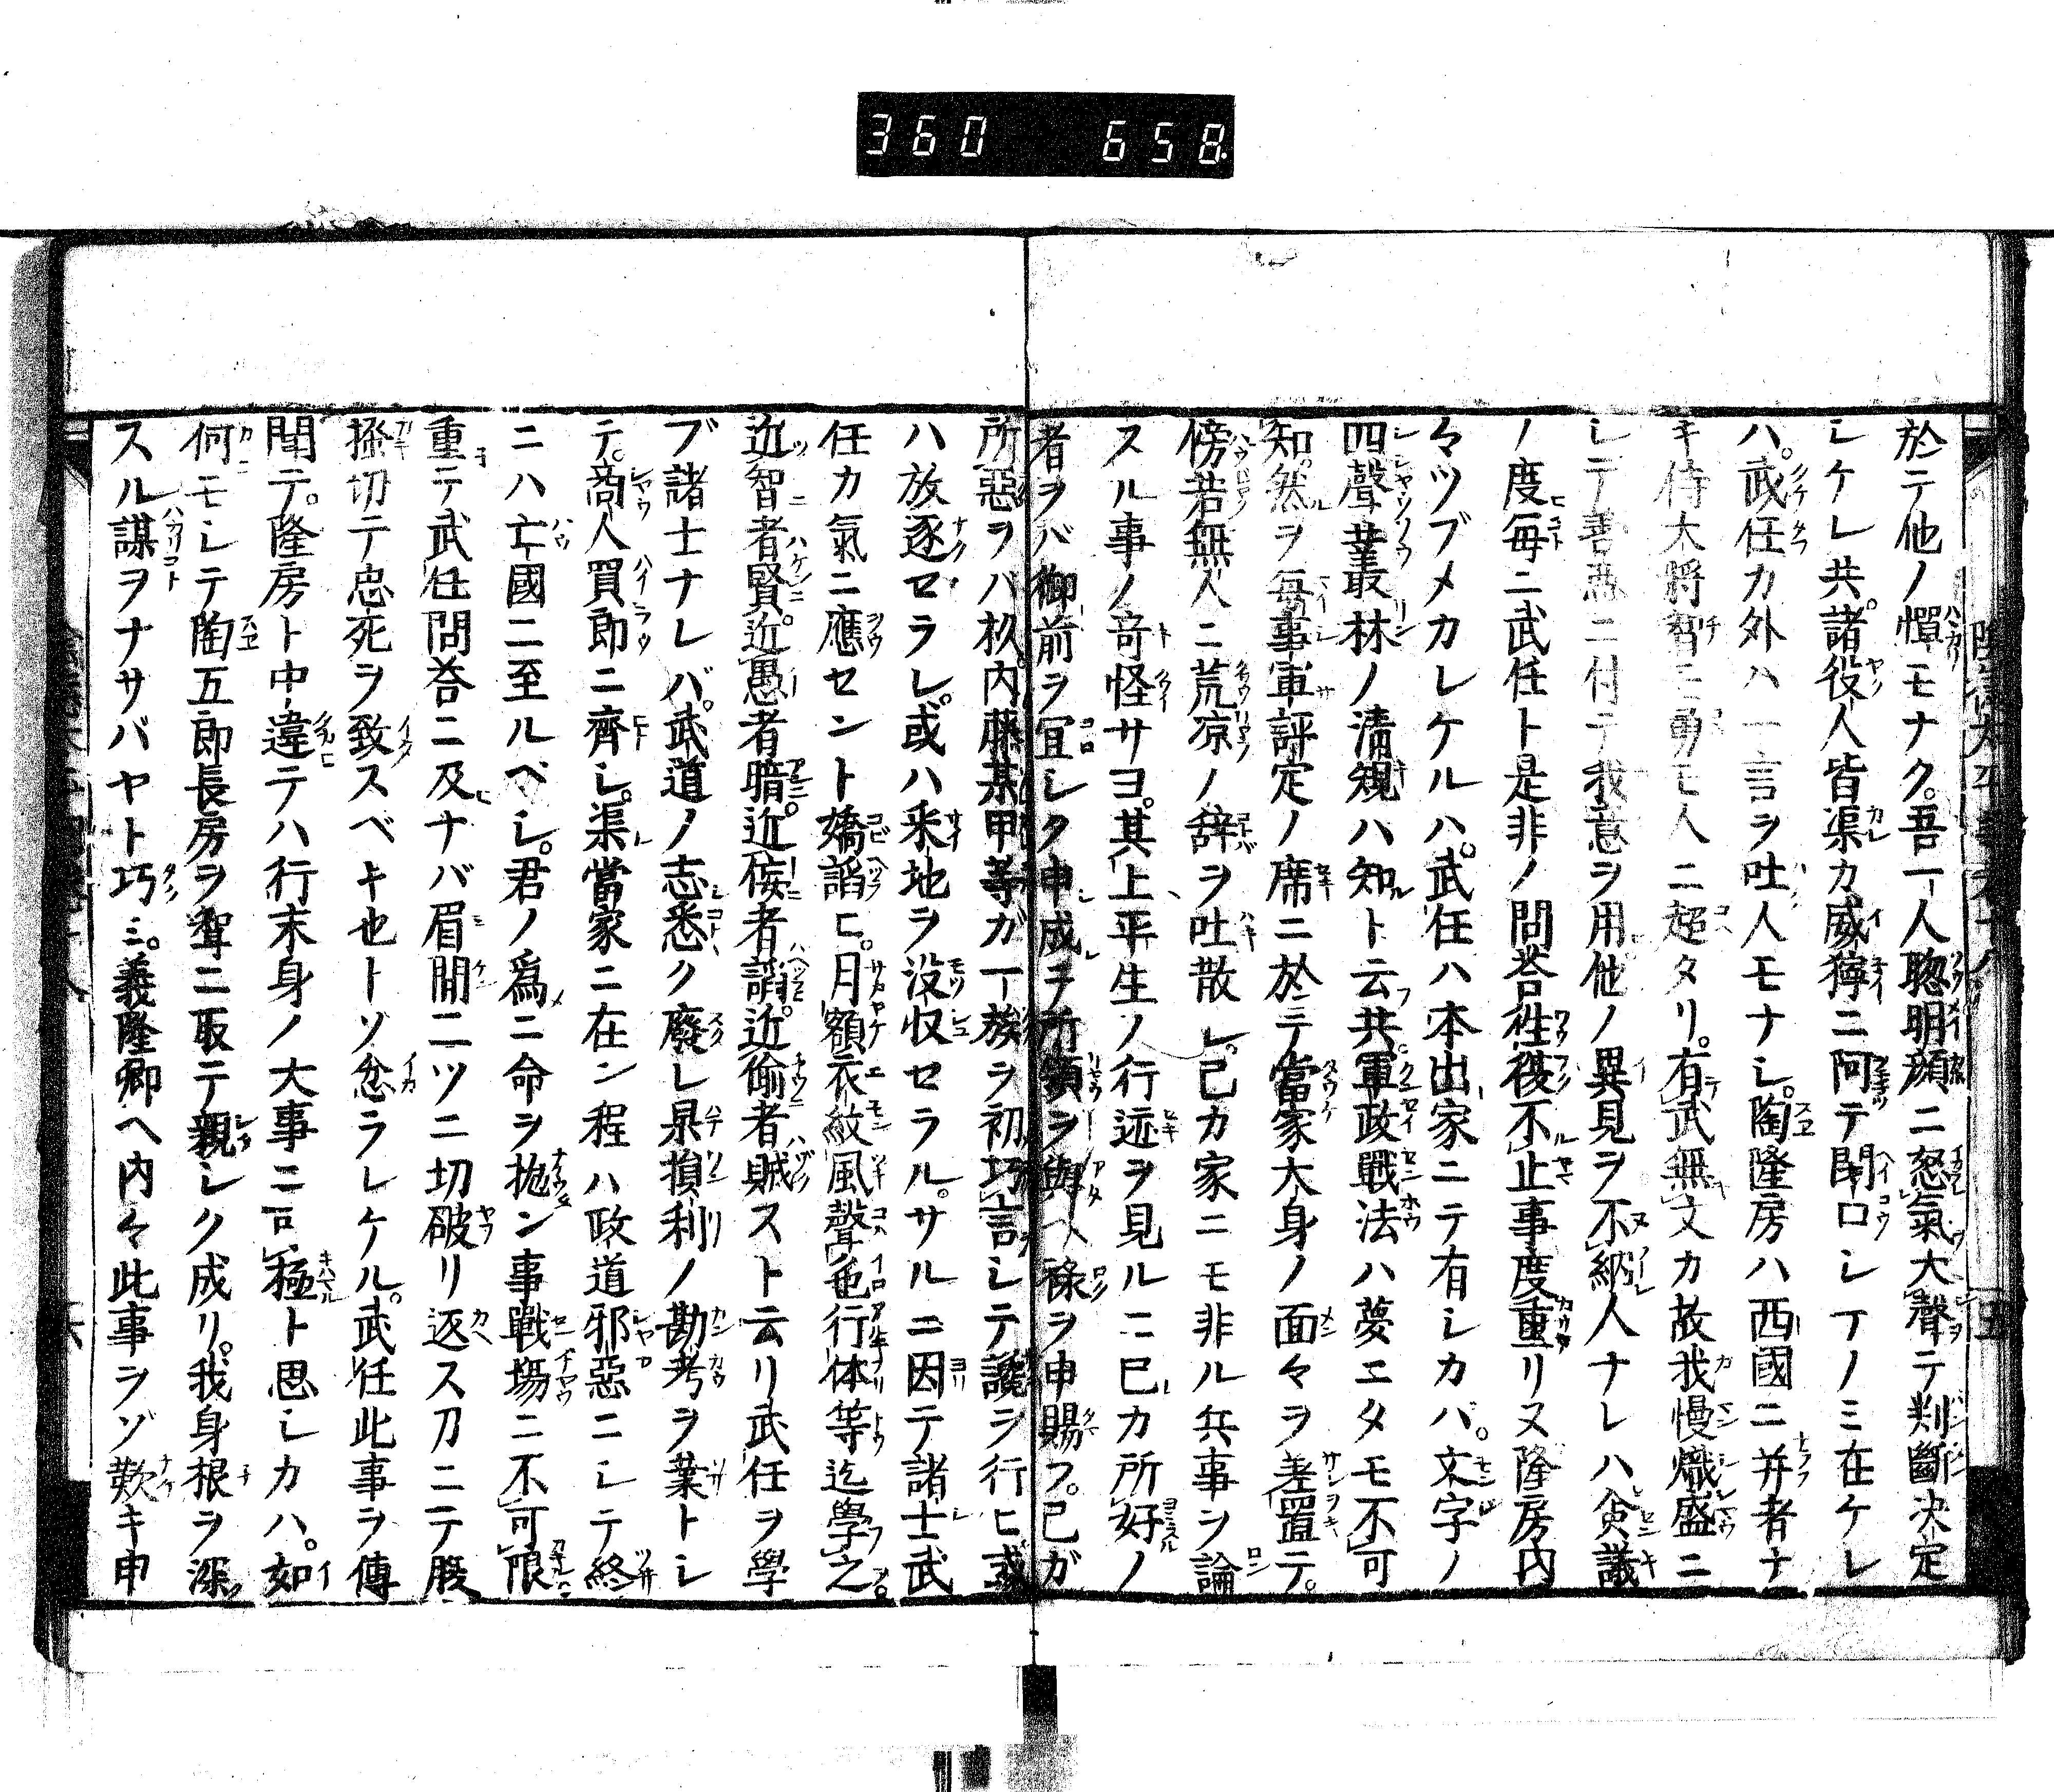 360 658
於テ他ノ憚モナク。吾一人聡明顔ニ怒氣大聲テ判斷決定
シケレ共。諸役人皆渠カ威獰ニ阿テ閉口シテノミ在ケレ
ハ。武任カ外ハ一言ヲ吐人モナシ。陶隆房ハ西國ニ并者ナ
キ侍大將智モ勇モ人ニ超タリ。有武無文カ故我慢熾盛ニ
シテ善惡ニ付テ我意ヲ用他ノ異見ヲ不納人ナレハ僉議
ノ度毎ニ武任ト是非ノ問荅往復不止事度重リヌ隆房内
々ツブメカレケルハ。武任ハ本出家ニテ有シカバ。文字ノ
四聲叢林ノ清規ハ知ト云共。軍政戰法ハ夢エタモ不可
知。然ヲ毎事軍評定ノ席ニ於テ當家大身ノ面々ヲ差置テ。
傍若無人ニ荒凉ノ辞ヲ吐散シ。己カ家ニモ非ル兵事ヲ論
スル事ノ竒怪サヨ。其上平生ノ行迹ヲ見ルニ已カ所好ノ
者ヲバ御前ヲ冝シク申成テ所領ヲ與ヘ祿ヲ申賜フ。己ガ
所惡ヲバ杦。内藤某甲等ガ一族ヲ初巧言シテ讒ヲ行ヒ或
ハ放逐セラレ。或ハ釆地ヲ没収セラル。サルニ因テ諸士武
任カ氣ニ應セント嬌謟ヒ。月額衣紋風聲色行体等迄學之。
近智者賢近。愚者暗近。侫者諂近。偷者賊ストテ云リ武任ヲ學
ブ諸士ナレバ。武道ノ志悉ク廢レ杲損利ノ勘考ヲ業トシ
テ。商人買郎ニ齊シ。渠當家ニ在ン程ハ政道邪惡ニシテ終
ニハ亡國ニ至ルベシ。君ノ爲ニ命ヲ抛ン事戰塲ニ不可限
重テ武任問荅ニ及ナバ眉間二ツニ切破リ返ス刀ニテ腹
搔切テ忠死ヲ致スベキ也トソ忿ラレケル。武任此事ヲ傳
聞テ。隆房ト中違テハ行末身ノ大事ニ可極ト思シカハ。如
何モシテ陶五郎長房ヲ聟ニ取テ親シク成リ。我身根ヲ深
スル謀ヲナサバヤト巧ミ。義隆卿ヘ内々此事ヲゾ歎キ申